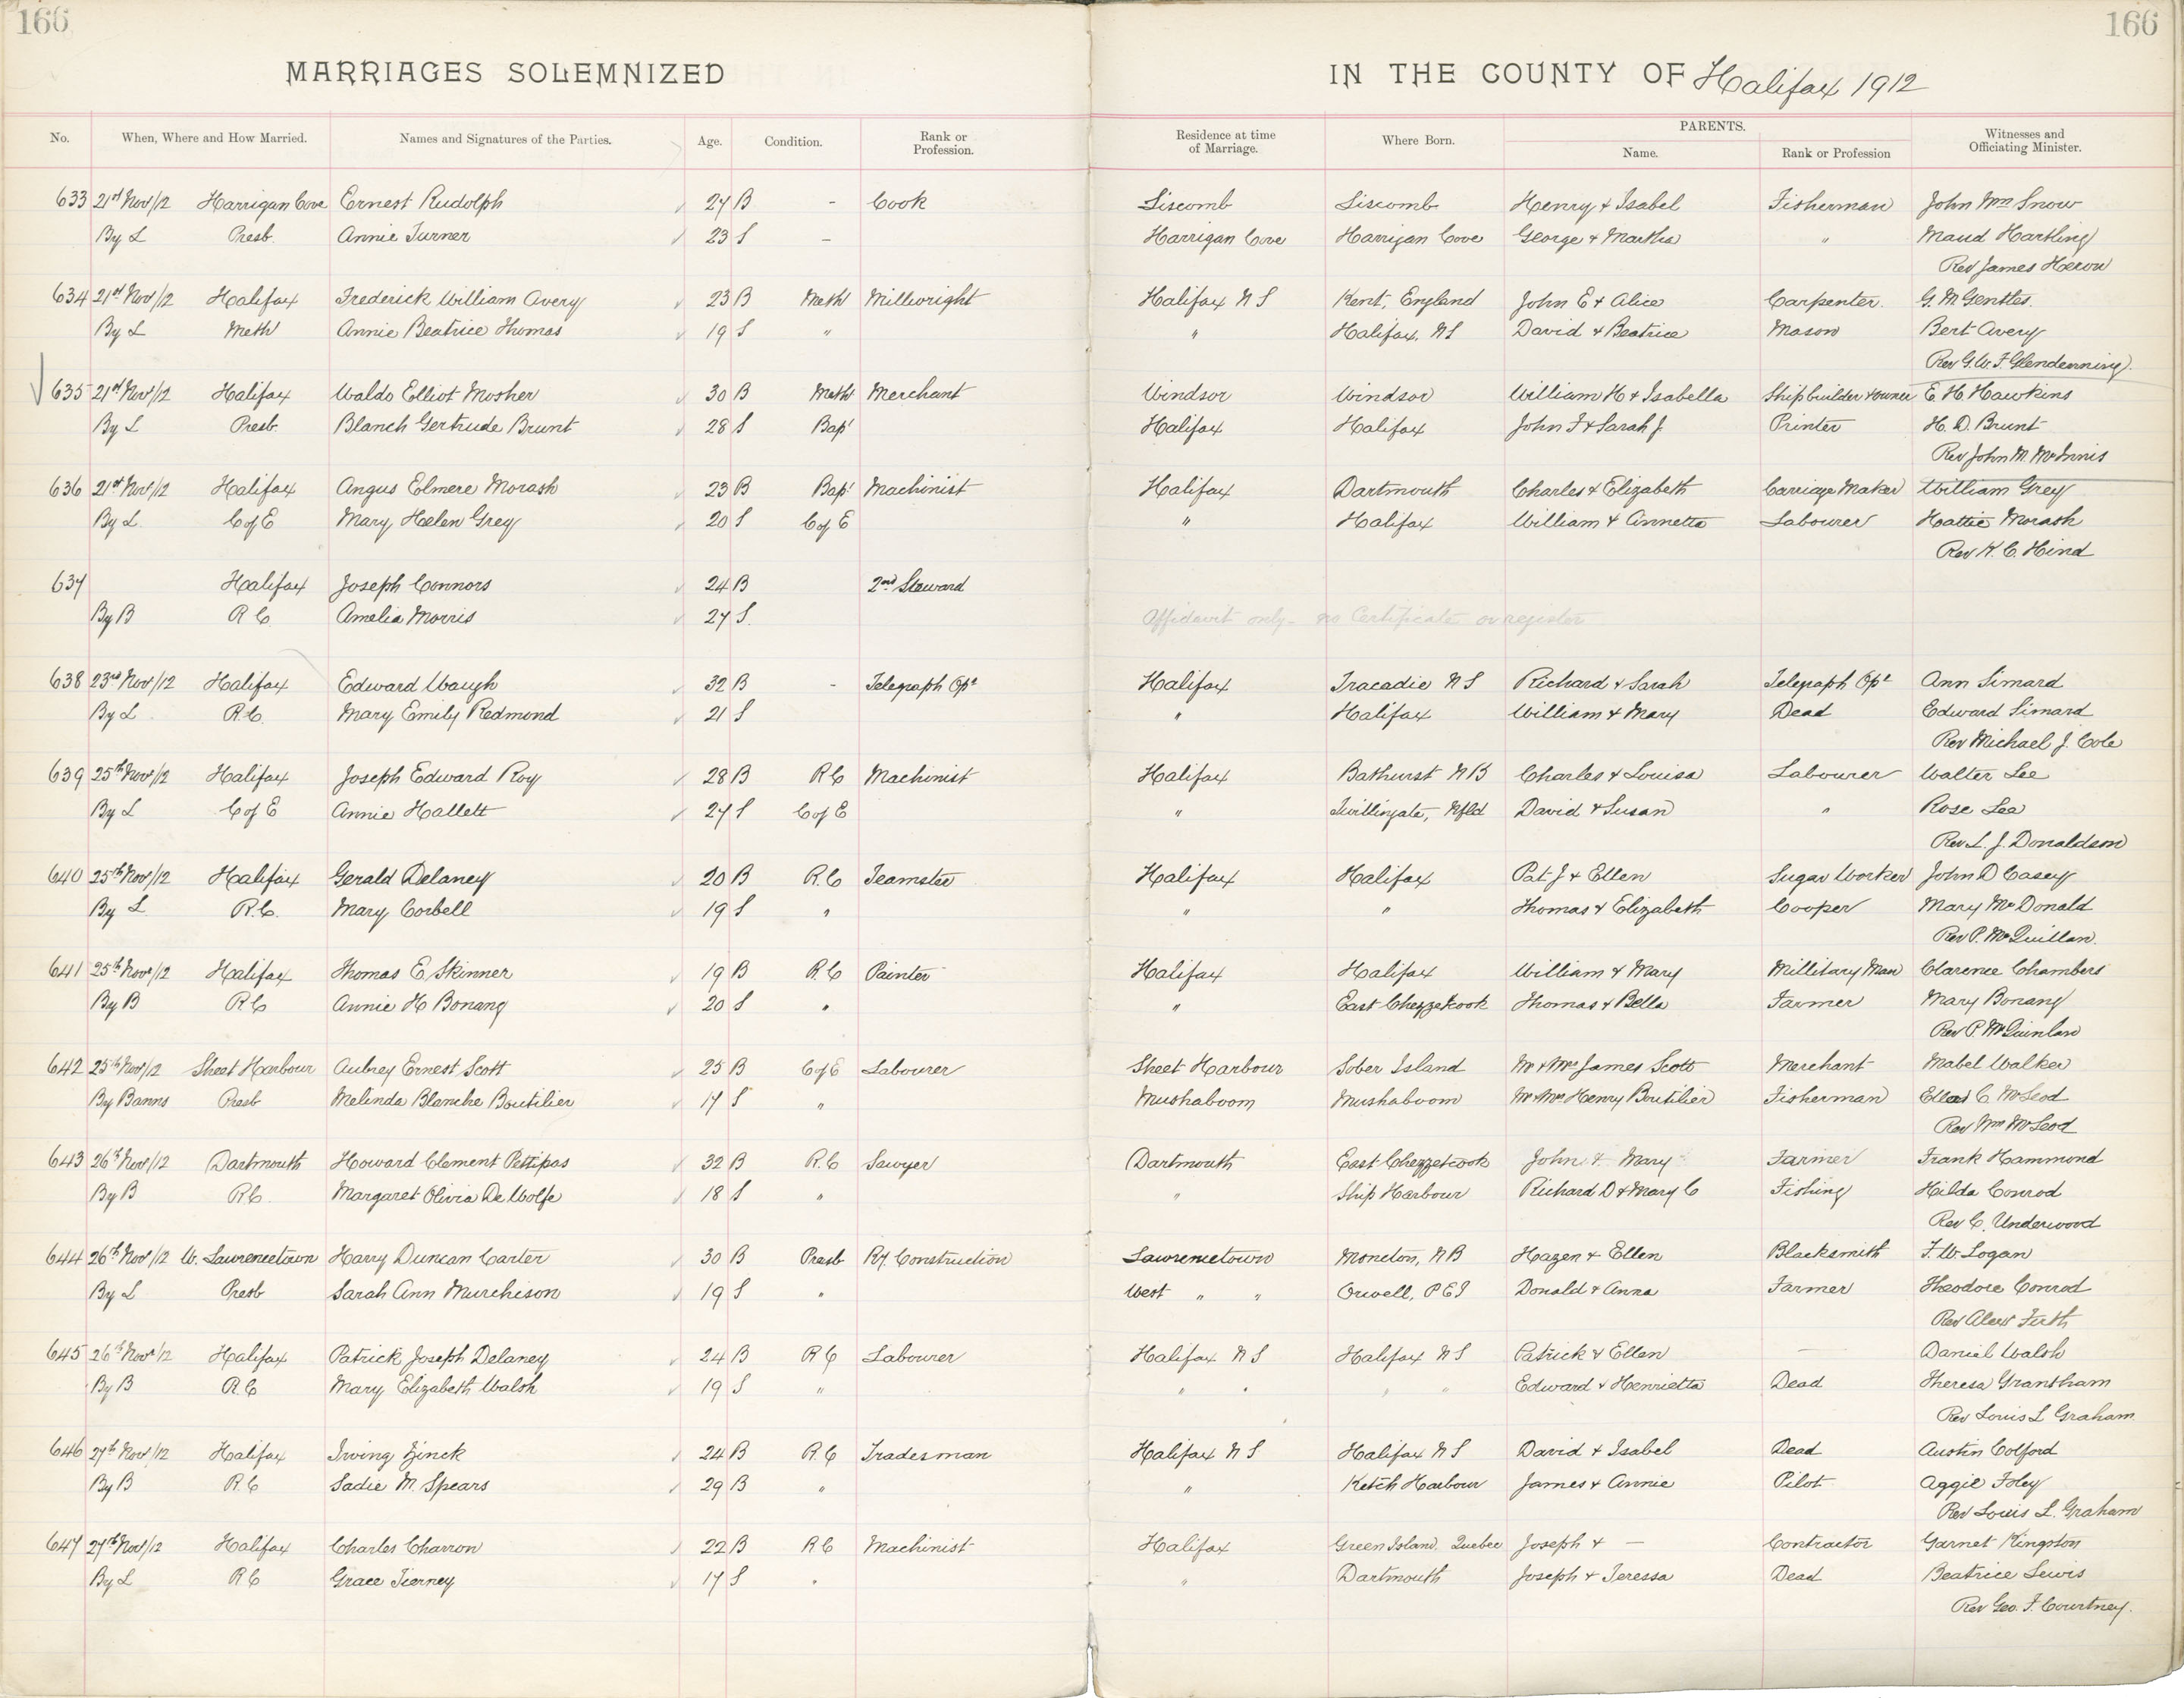 166 166
MARRIAGES SOLEMNIZED IN THE COUNTY OF Halifax 1912
No. When, Where and How Married. Names and Signatures of the Parties. Age. Condition. Rank or Profession. Residence at time of Marriage. Where Born. PARENTS. Name. Rank or Profession Witnesses and Officiating Minister.
633 21st Nov/12 Harrigan Cove Ernest Rudolph 27 B - Cook Liscomb Liscomb Henry & Isabel Fisherman John Wm Snow
By L Presb. Annie Turner 23 S - Harrigan Cove Harrigan Cove George & Martha " Maud Hartling
Rev James Heron
634 21st Nov/12 Halifax Frederick William Avery 23 B Meth Millwright Halifax N S Kent, England John E & Alice Carpenter. G. M Gentles.
By L Meth Annie Beatrice Thomas 19 S " " Halifax, NS David & Beatrice Mason Bert Avery
Rev G. W. F. Glendenning
635 21st Nov/12 Halifax Waldo Elliot Mosher 30 B Meth Merchant Windsor Windsor William H & Isabella Shipbuilder & owner E. H. Hawkins
By L Presb. Blanch Gertrude Brunt 28 S Bapt Halifax Halifax John F & Sarah J. Printer H. D. Brunt
Rev John M. McInnis
636 21st Nov/12 Halifax Angus Elmere Morash 23 B Bapt Machinist Halifax Dartmouth Charles & Elizabeth Carriage Maker William Grey
By L. C of E Mary Helen Grey 20 S C of E " Halifax William & Annetta Labourer Hattie Morash
Rev K. C. Hind
637 Halifax Joseph Connors 24 B 2nd Steward
By B R C Amelia Morris 27 S. Affidavit only - no Certificate or register
638 23rd Nov/12 Halifax Edward Waugh 32 B - Telegraph Opr Halifax Tracadie N S Richard & Sarah Telegraph Opr Ann Simard
By L. R.C. Mary Emily Redmond 21 S " Halifax William & Mary Dead Edward Simard
Rev Michael J. Cole
639 25th Nov/12 Halifax Joseph Edward Roy 28 B R C Machinist Halifax Bathurst N B Charles & Louisa Labourer Walter Lee
By L C of E Annie Hallett 27 S C of E " Twillingate, Nfld David & Susan " Rose Lee
Rev L. J. Donaldson
640 25th Nov/12 Halifax Gerald Delaney 20 B R.C Teamster Halifax Halifax Pat J & Ellen Sugar Worker John D Casey
By L R.C. Mary Corbell 19 S " " " Thomas & Elizabeth Cooper Mary McDonald
Rev P. McQuillan.
641 25th Nov/12 Halifax Thomas E. Skinner 19 B R.C Painter Halifax Halifax William & Mary Millitary Man Clarence Chambers
By B R C Annie H Bonang 20 S " " East Chezzetcook Thomas & Bella Farmer Mary Bonang
Rev P. McQuinlan
642 25th Nov/12 Sheet Harbour Aubrey Ernest Scott 25 B C of E Labourer Sheet Harbour Sober Island Mr & Mrs James Scott Merchant Mabel Walker
By Banns Presb Melinda Blanche Boutilier 17 S " Mushaboom Mushaboom Mr & Mrs Henry Boutilier Fisherman C McLeod
Rev Wm McLeod
643 26th Nov/12 Dartmouth Howard Clement Pettipas 32 B R.C Sawyer Dartmouth East Chezzetcook John & Mary Farmer Frank Hammond
By B R C. Margaret Olivia DeWolfe 18 S " " Ship Harbour Richard D & Mary C Fishing Hilda Conrod
Rev C. Underwood
644 26th Nov/12 W. Lawrencetown Harry Duncan Carter 30 B Presb Ry. Construction Lawrencetown Moncton, N B Hazen & Ellen Blacksmith F. W. Logan
By L Presb Sarah Ann Murchison 19 S " West " " Orwell, P E I Donald & Anna Farmer Theodore Conrod
Rev Alexr Firth
645 26th Nov/12 Halifax Patrick Joseph Delaney 24 B R C Labourer Halifax N S Halifax N S Patrick & Ellen — Daniel Walsh
By B R.C Mary Elizabeth Walsh 19 S " " " " " Edward & Henrietta Dead Theresa Grantham
Rev Louis L Graham.
646 27th Nov/12 Halifax Irving Zinck 24 B R.C Tradesman Halifax N S Halifax N S David & Isabel Dead Austin Colford
By B R.C Sadie M. Spears 29 B " " Ketch Harbour James & Annie Pilot Aggie Foley
Rev Louis L. Graham
647 27th Nov/12 Halifax Charles Charron 22 B R C Machinist Halifax Green Island, Quebec Joseph & — Contractor Garnet Kingston
By L R C Grace Tierney 17 S " " Dartmouth Joseph & Teressa Dead Beatrice Lewis
Rev Geo. F. Courtney.